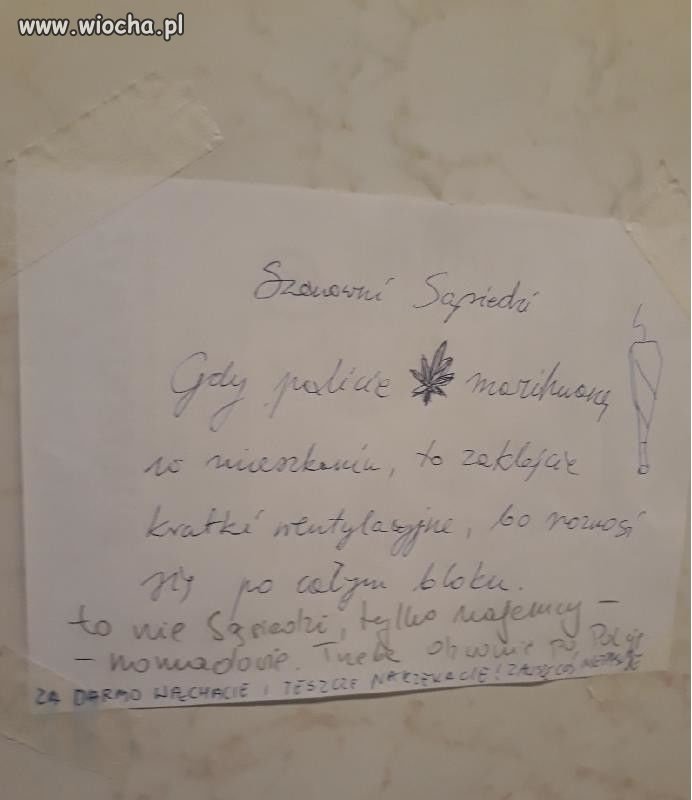 www.wiocha.pl
Szanowni Sąsiedzi
Gdy palicie marihuanę
w mieszkaniu, to zaklejcie
kratki wentylacyjne, bo roznosi
się po całym bloku.
to nie Sąsiedzi, tylko najemcy -
- nomadowie. Trzeba dzwonić po Policję
ZA DARMO WĄCHACIE I JESZCZE NARZEKACIE! ZAWSZE COŚ NIE PASUJE